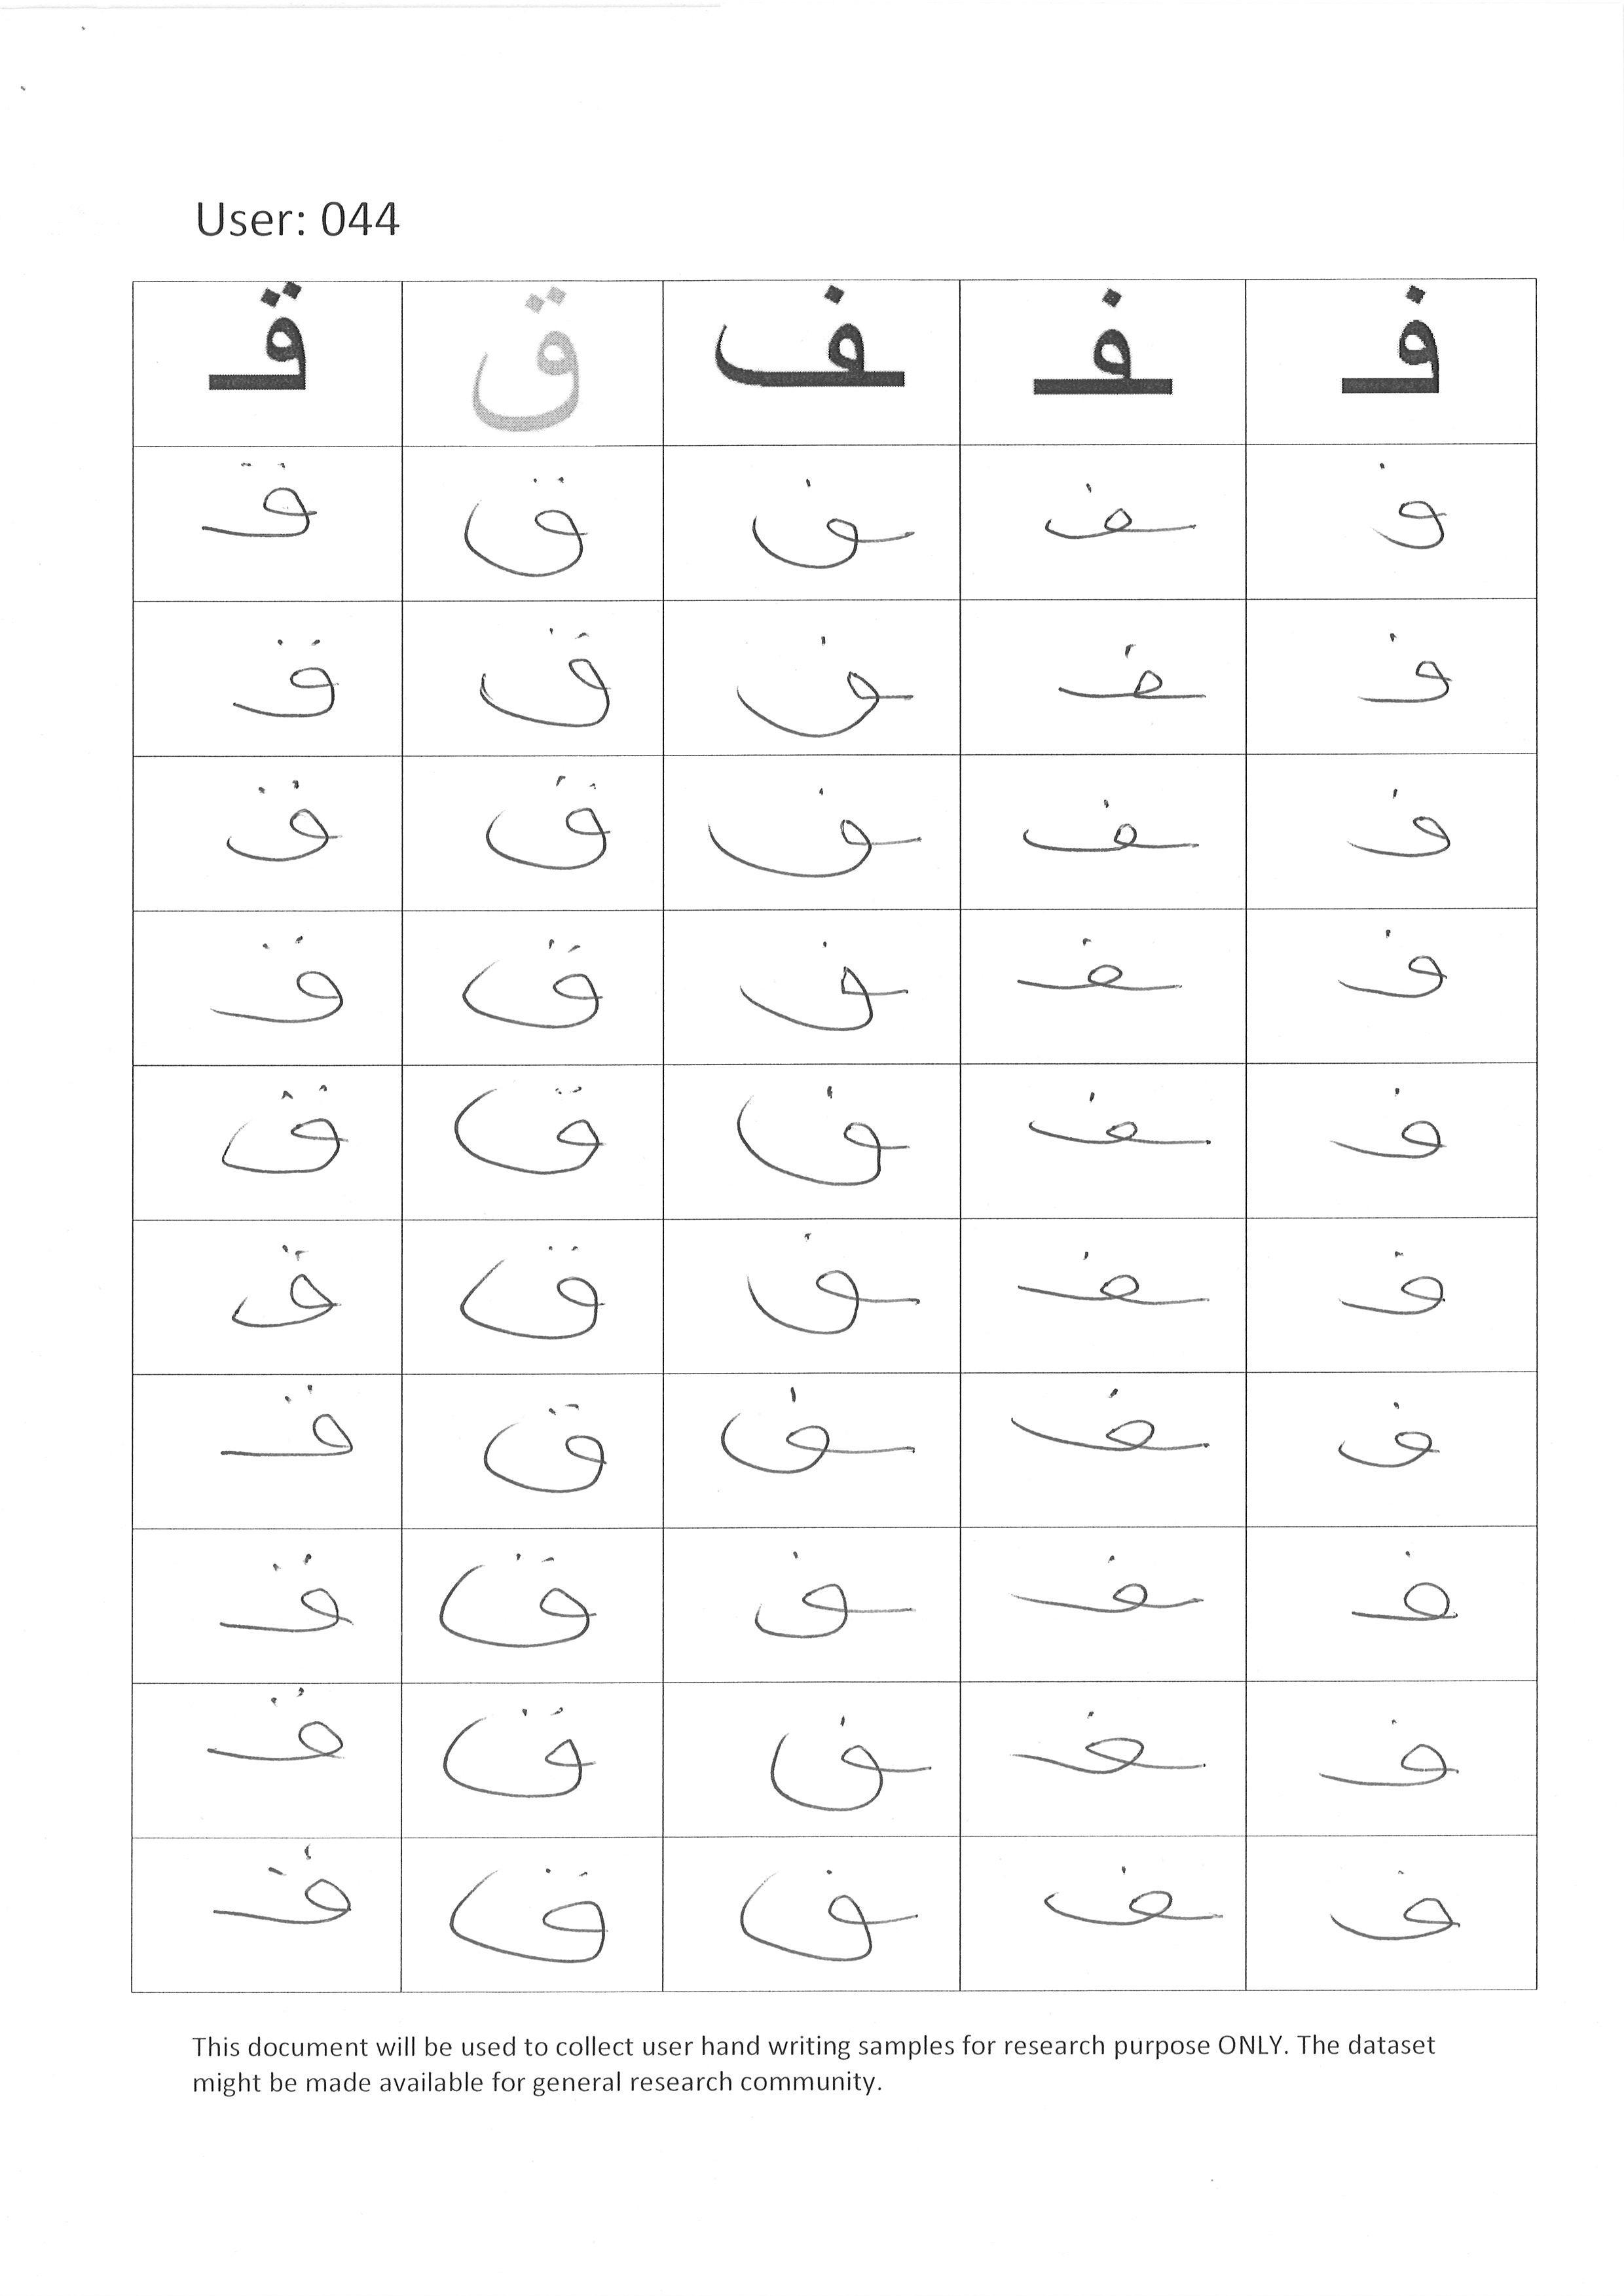 User: 044
قـ ق ـف ـفـ فـ
قـ ق ـف ـفـ فـ
قـ ق ـف ـفـ فـ
قـ ق ـف ـفـ فـ
قـ ق ـف ـفـ فـ
قـ ق ـف ـفـ فـ
قـ ق ـف ـفـ فـ
قـ ق ـف ـفـ فـ
قـ ق ـف ـفـ فـ
قـ ق ـف ـفـ فـ
قـ ق ـف ـفـ فـ
This document will be used to collect user hand writing samples for research purpose ONLY. The dataset
might be made available for general research community.